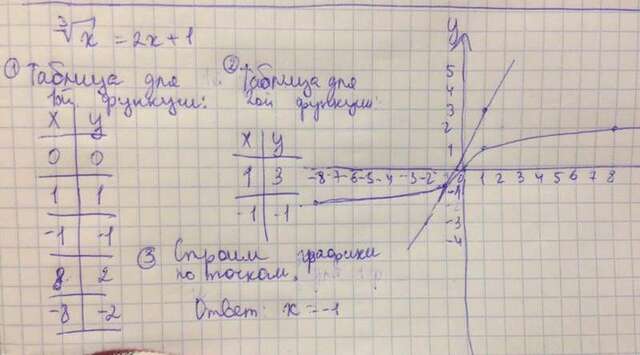 ∛x = 2x+1
① Таблица для
1ой функции:
x y
0 0
1 1
-1 -1
8 2
-8 -2
② Таблица для
2ой функции:
x y
1 3
-1 -1
③ Строим графики
по точкам.
Ответ: x = -1
y
5
4
3
2
1
-8 -7 -6 -5 -4 -3 -2 0 1 2 3 4 5 6 7 8 x
-1
-3
-4